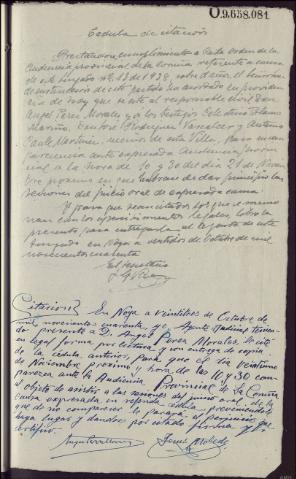 0.9.658.081
Cedula de citación
Prestando cumplimiento a carta orden de la
Audiencia provincial de la Coruña referente a causa
de este Juzgado nº 13 de 1938, sobre daño, el Señor Juez
de instrucción de este partido ha acordado en providen
cia de hoy que se cite al responsable civil Don
Angel Perez Morales, y a los testigos Celestino
Mariño, Rodriguez y Antonio
Martinez, vecinos de esta Villa, para su com
parecencia ante expresada Audiencia provin
cial a la hora de 10 y 30 del día 21 de Noviem
bre próximo en que habran de dar principio las
sesiones del juicio oral de expresada causa
Y para que sean citados los que se mencio
nan con los apercibimientos legales, libro la
presente, para entregarla al Agente de este
Juzgado en Noya a veintidos de Octubre de mil
novecientos cuarenta
El Secretario
Citacion En Noya a veintitres de Octubre de
mil novecientos cuarenta yo, Agente Judicial, tenien
do presente a D. Angel Perez Morales, le cité
en legal forma por lectura y con entrega de copia
de la cédula anterior para que el día veintiuno
de Noviembre proximo y hora de las 10 y 30 com
parezca ante la Audiencia Provincial de La Coruña
al objeto de asistir a las sesiones del juicio oral de la
causa expresada en referida cédula previniendole
que de no comparecer le parará el perjuicio que
haya lugar y dandose por citado firma y
certifico.